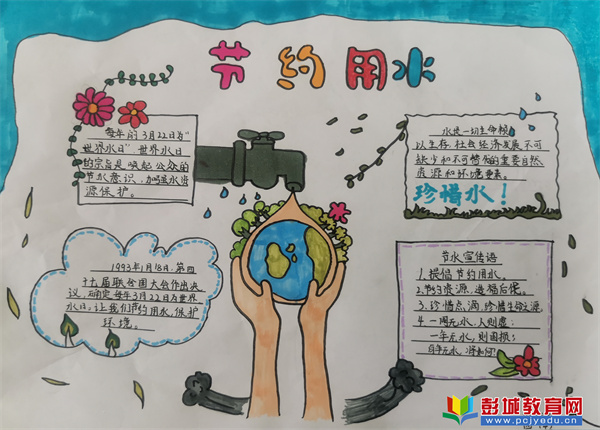 节约用水
每年的3月22日为“
世界水日”世界水日
的宗旨是唤起公众的
节水意识,加强水资
源保护。
水是一切生命赖
以生存,社会经济发展不可
缺少和不可替代的重要自然
资源和环境要素。
珍惜水!
1993年1月18日,第四
十七届联合国大会作出决
议,确定每年3月22日为世界
水日,让我们节约用水,保护
环境。
节水宣传语
1.提倡节约用水
2.节约资源,造福后代。
3.珍惜点滴,珍惜生命之源
4.一周无水,人则虑;
一年无水,则国损;
百年无水,
彭城教育网
www.pcjyedu.cn